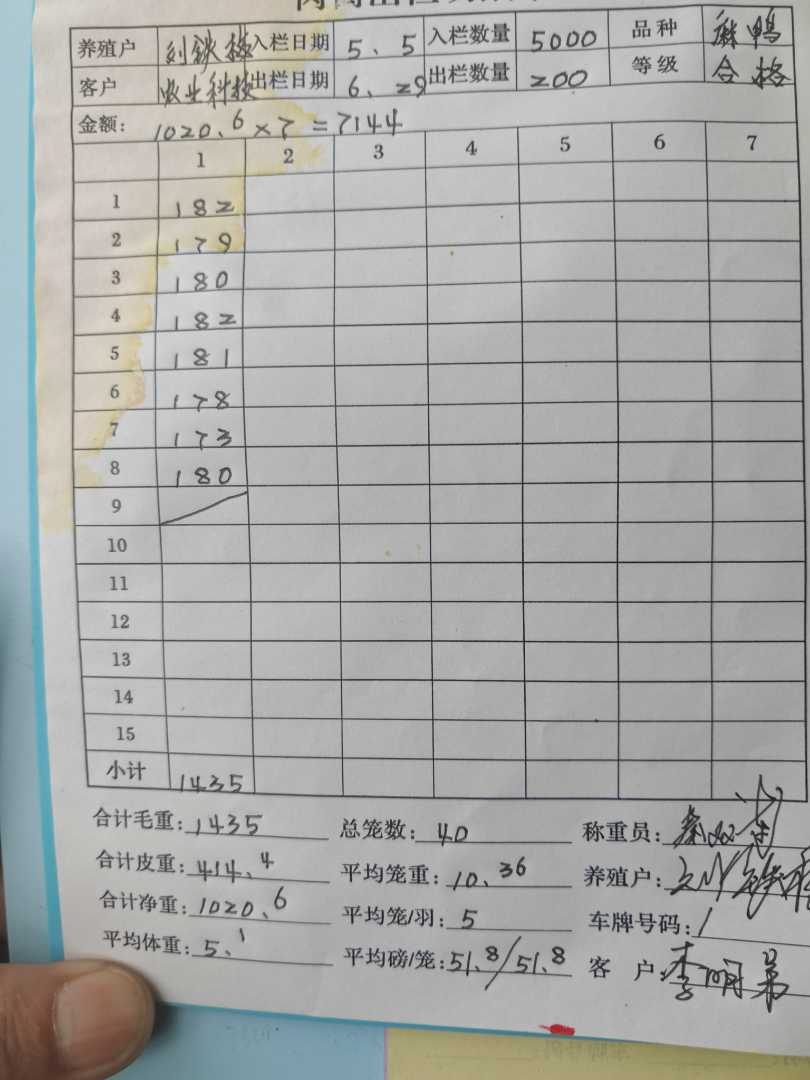 养殖户 刘铁梅 入栏日期 5.5 入栏数量 5000 品种 麻鸭
客户 农业科技 出栏日期 6.29 出栏数量 200 等级 合格
金额: 1020.6×7=7144
1 2 3 4 5 6 7
1 182
2 179
3 180
4 182
5 181
6 178
7 173
8 180
9
10
11
12
13
14
15
小计 1435
合计毛重: 1435 总笼数: 40 称重员:
合计皮重: 414.4 平均笼重: 10.36 养殖户:
合计净重: 1020.6 平均笼/羽: 5 车牌号码: /
平均体重: 5.1 平均磅/笼: 51.8/51.8 客 户: 李明弟